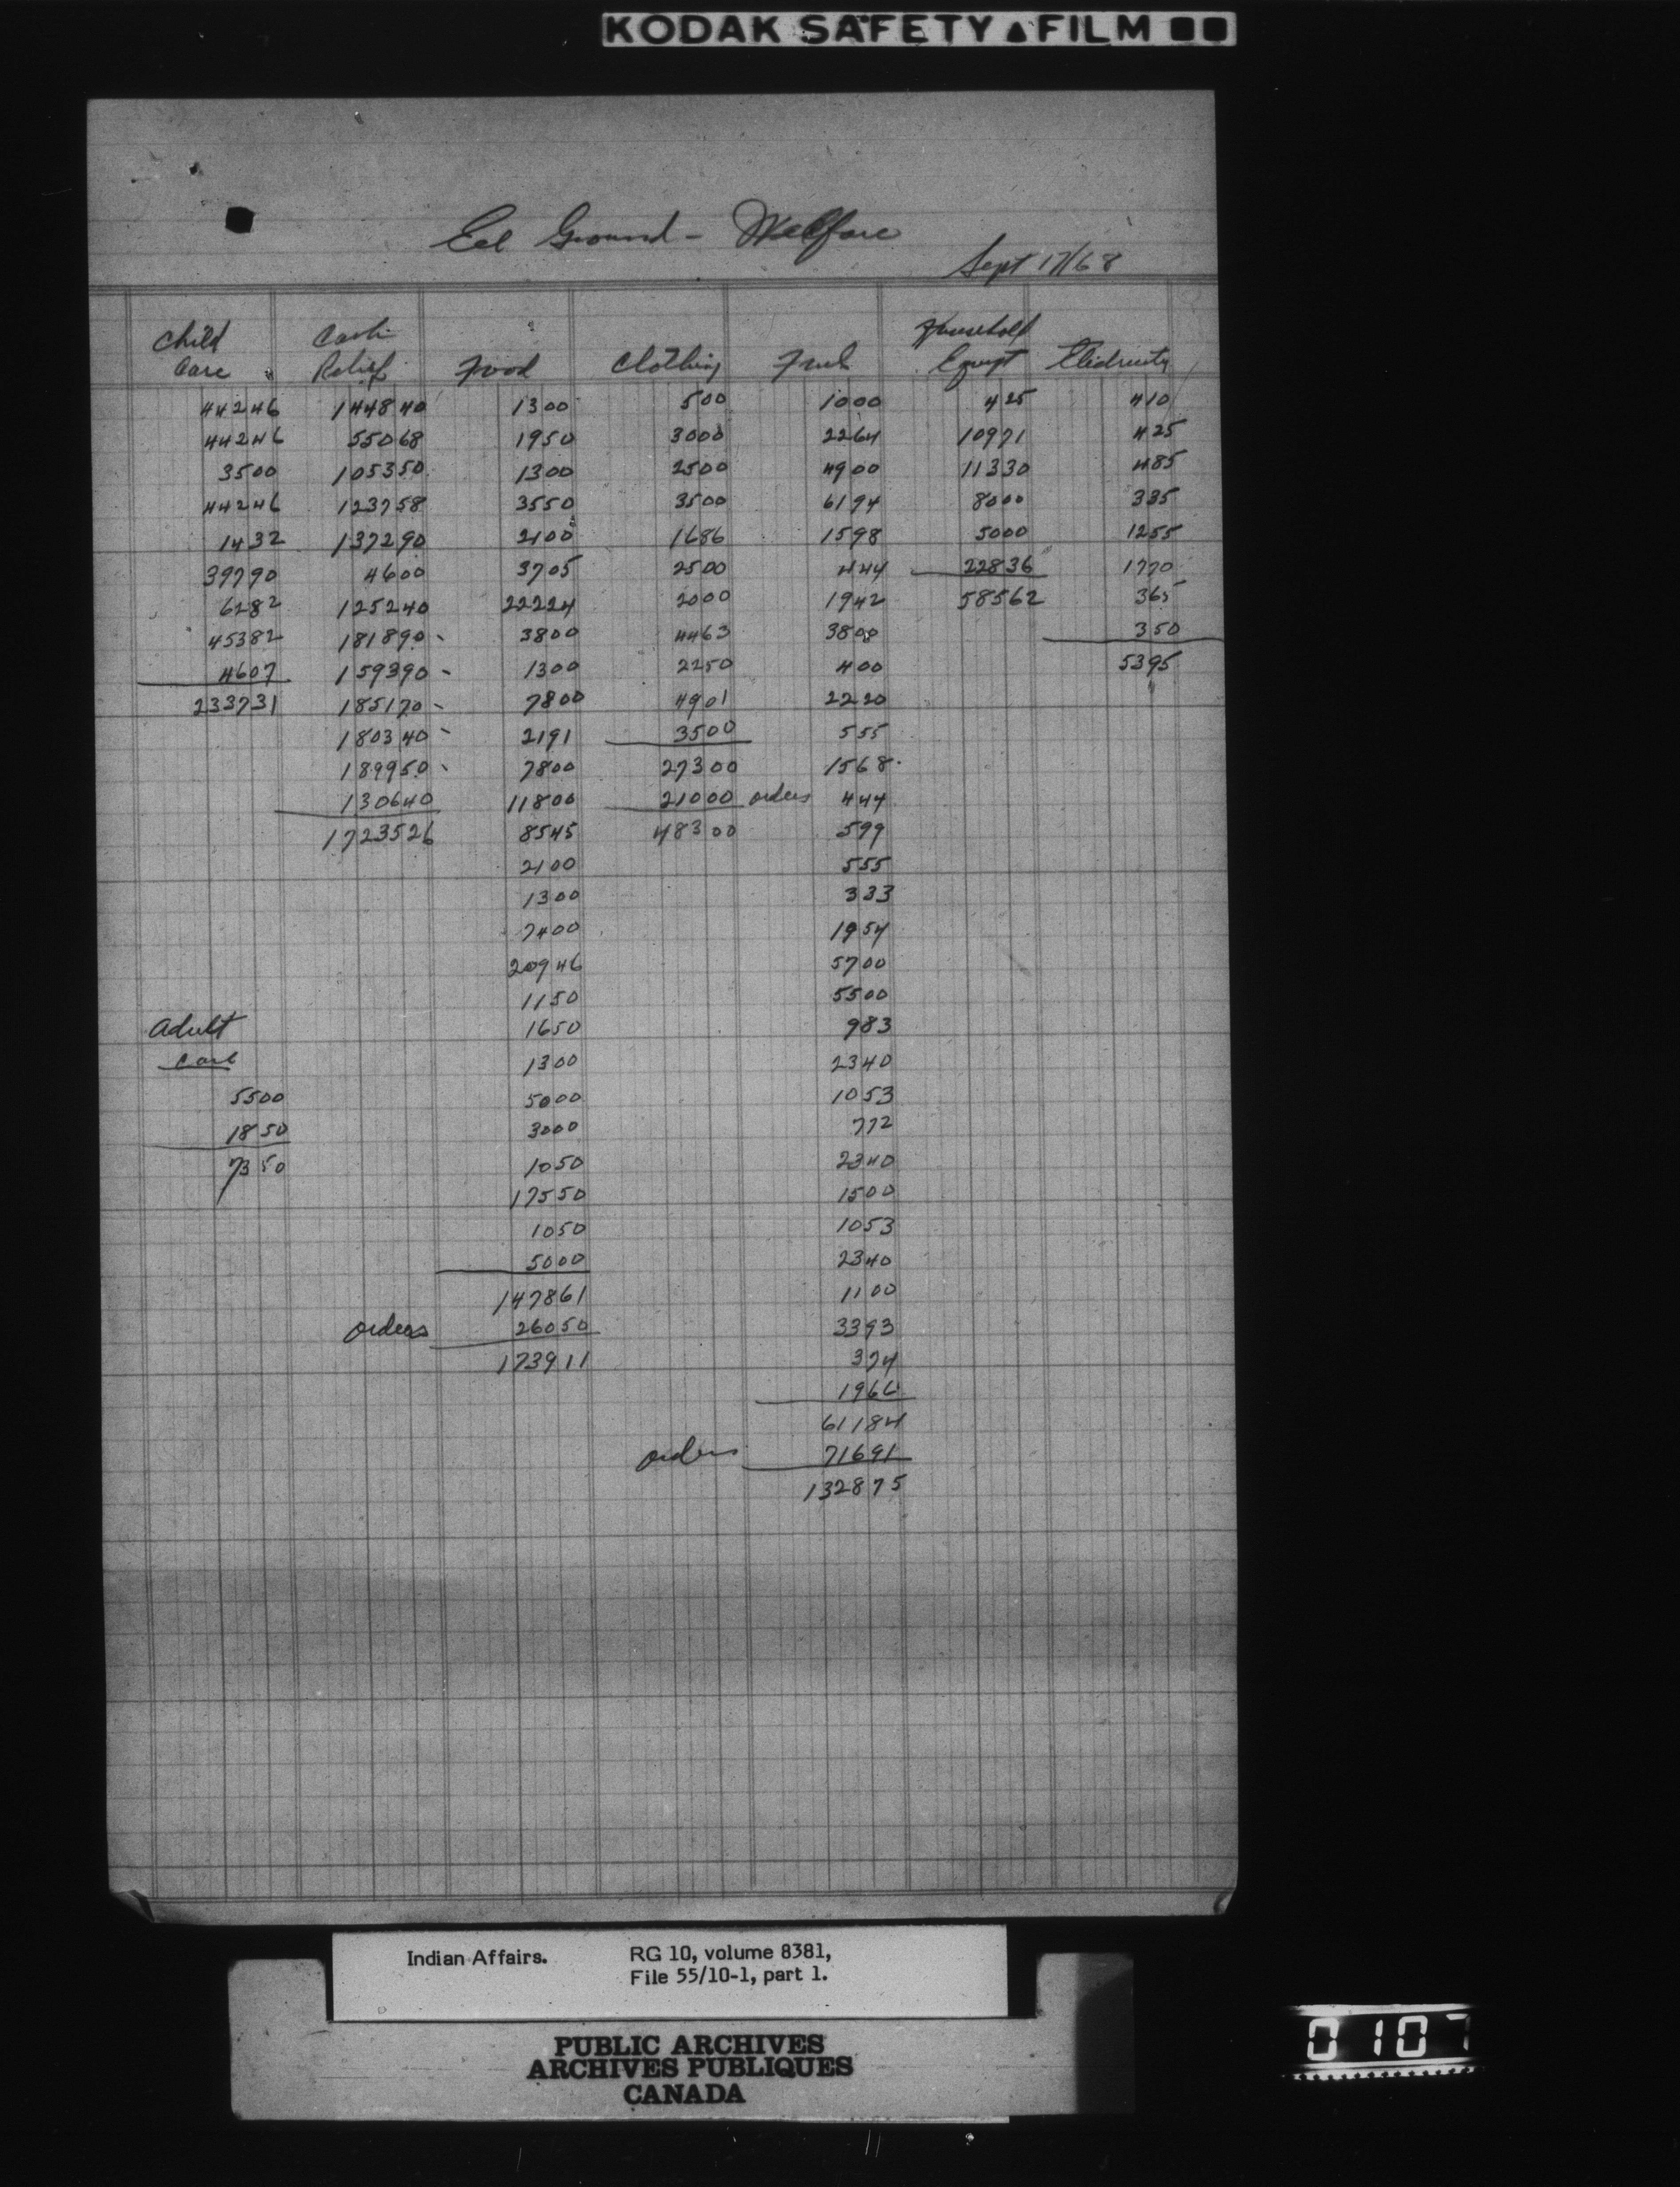 KODAK SAFETY ▲ FILM ■■
Eel Ground - Welfare
Sept 17/68
Child Care Cash Relief Food Clothing Fuel Household Equpt Electricity
44246 144840 1300 500 1000 425 410
44246 55068 1950 3000 2264 10971 425
3500 105350 1300 2500 4900 11330 485
44246 123758 3550 3500 6194 8000 335
1432 137290 2100 1686 1598 5000 1255
39790 4600 3705 2500 444 22836 1770
6282 125240 22224 2000 1942 58562 365
45382 181890 - 3800 4463 3800 350
4607 159390 - 1300 2250 400 5395
233731 185170 - 7800 4901 2220
180340 - 2191 3500 555
189950 - 7800 27300 1568
130640 11800 21000 orders 444
1723526 8545 48300 599
2100 555
1300 333
7400 1954
20946 5700
1150 5500
Adult 1650 983
Care 1300 2340
5500 5000 1053
1850 3000 772
7350 1050 2340
17550 1500
1050 1053
5000 2340
147861 1100
orders 26050 3393
173911 374
1966
61184
orders 71691
132875
Indian Affairs. RG 10, volume 8381,
File 55/10-1, part 1.
PUBLIC ARCHIVES
ARCHIVES PUBLIQUES
CANADA
0107